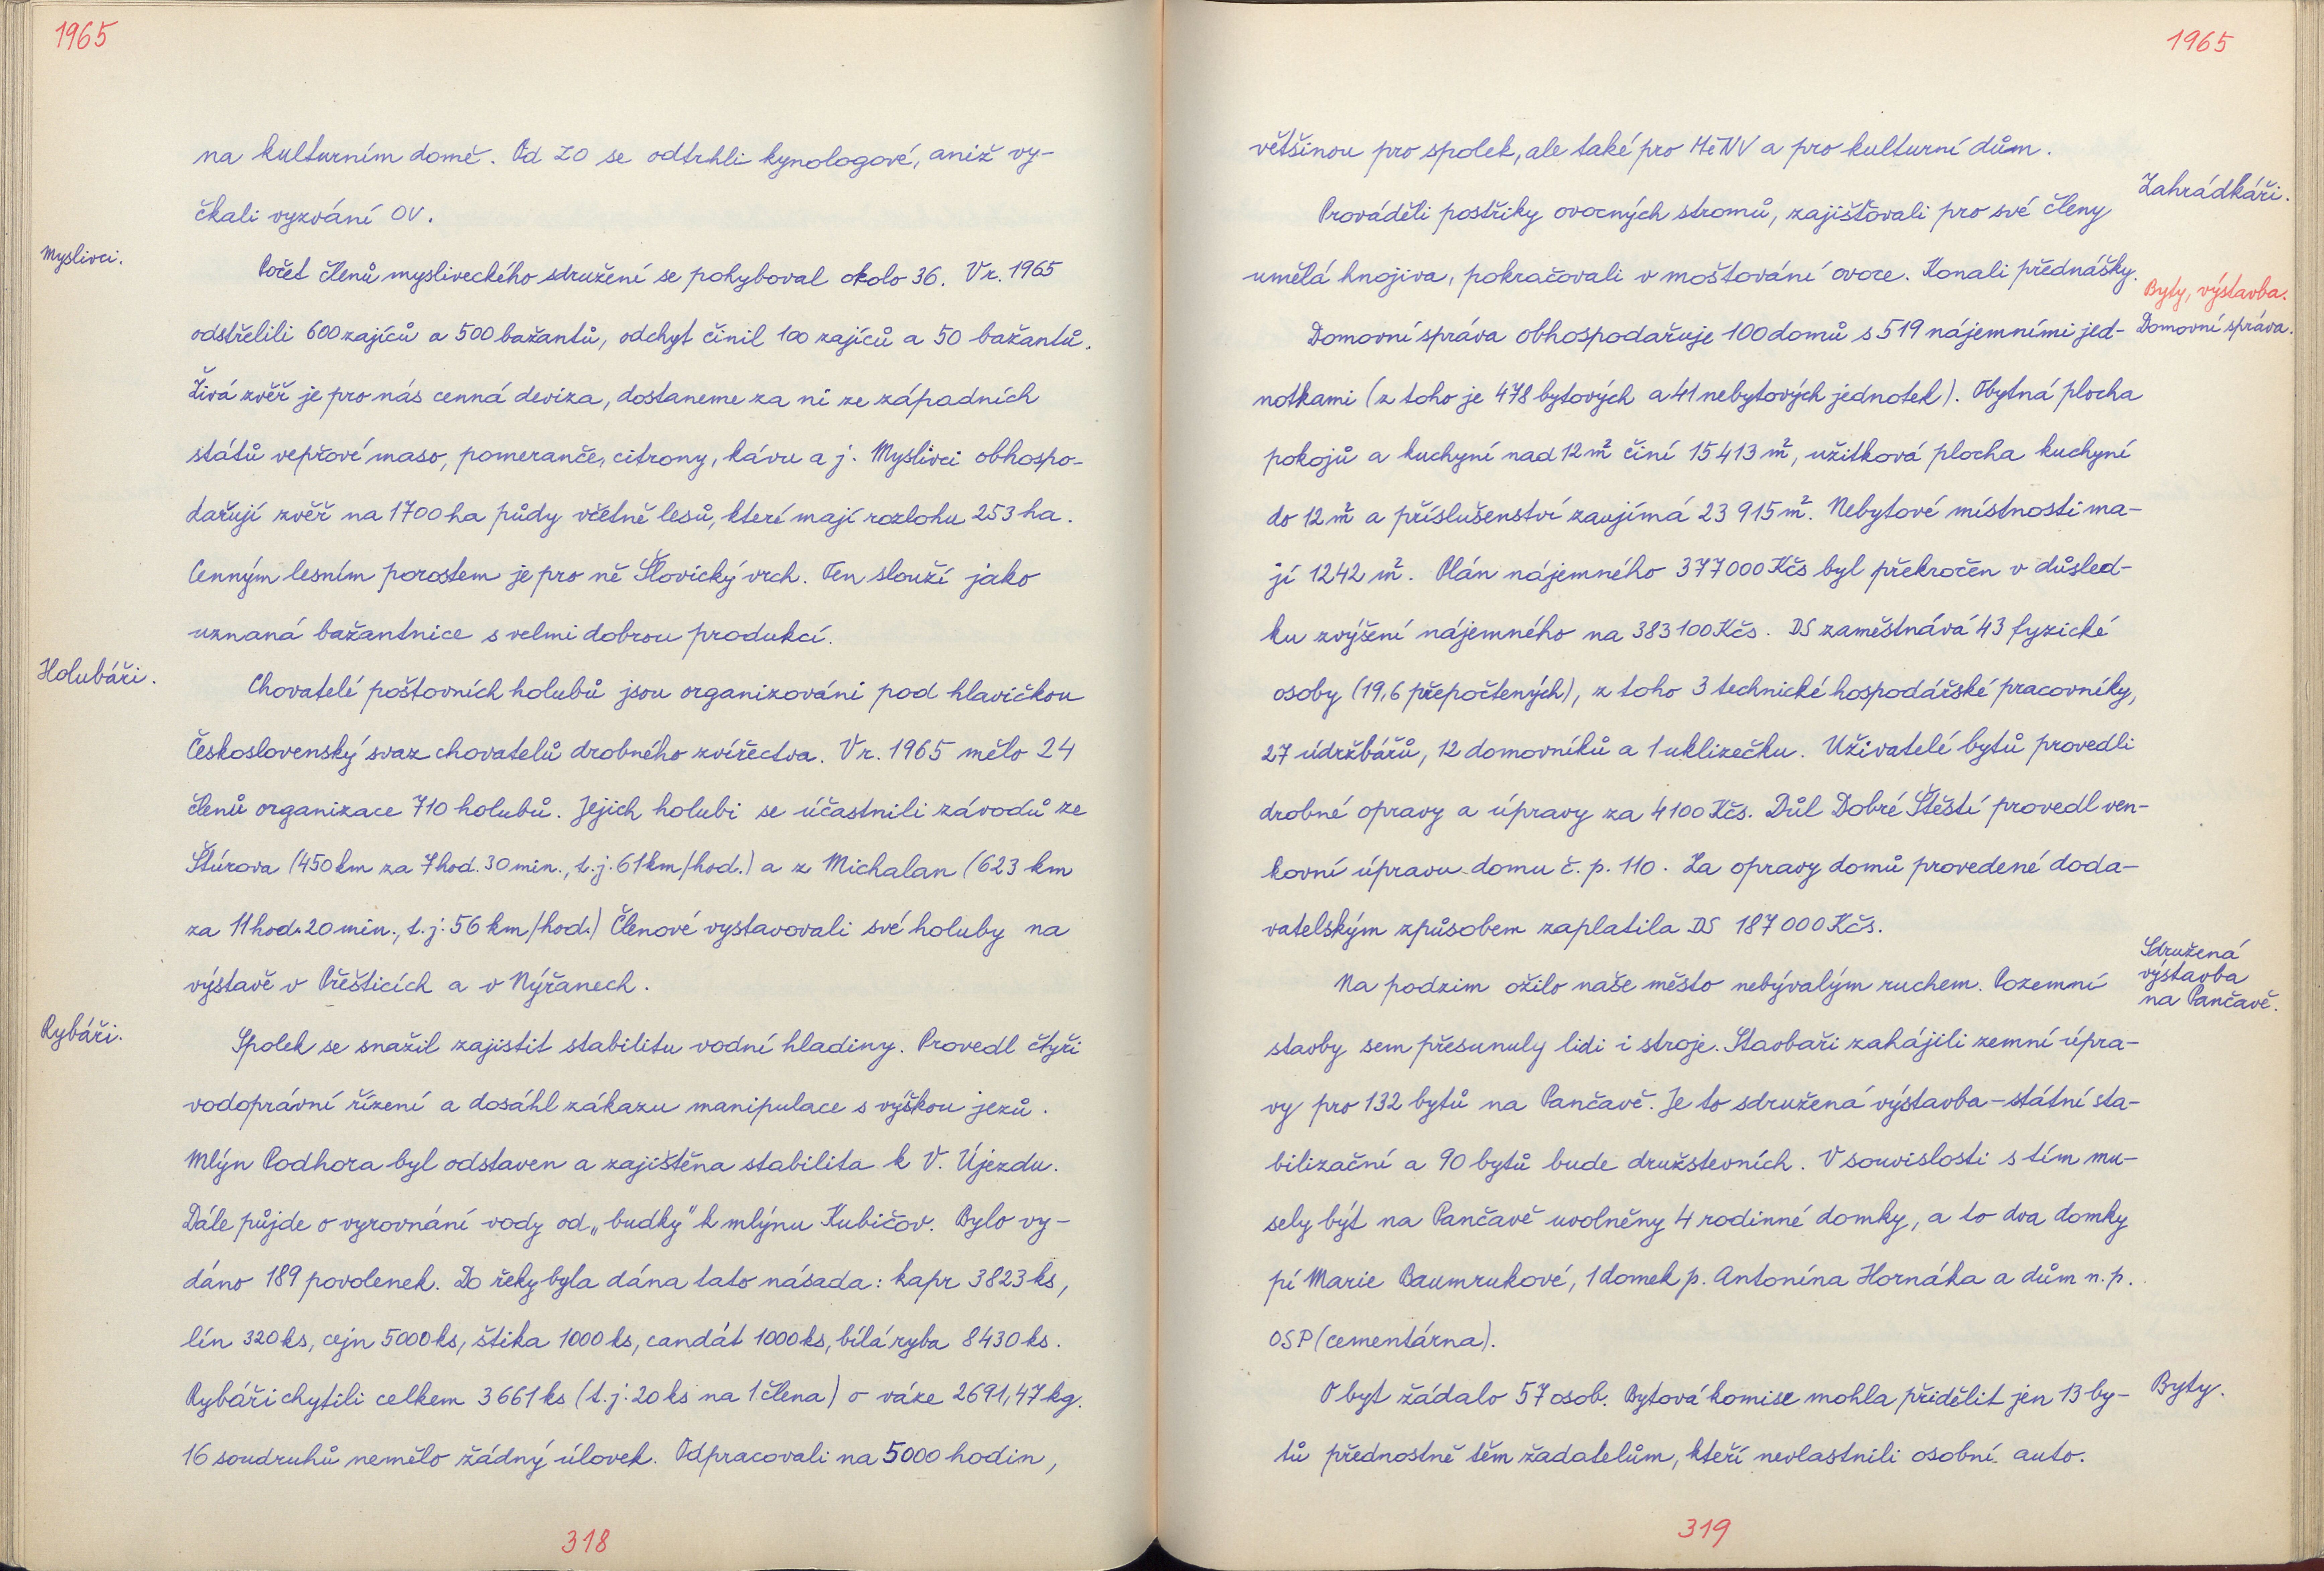 1965
na kulturním domě. Od ZO se odtrhli kynologové, aniž vy-
čkali vyzvání OV.
Myslivci.
Počet členů mysliveckého sdružení se pohyboval okolo 36. V r. 1965
odstřelili 600 zajíců a 500 bažantů, odchyt činil 100 zajíců a 50 bažantů.
Živá zvěř je pro nás cenná deviza, dostaneme za ni ze západních
států vepřové maso, pomeranče, citrony, kávu a j. Myslivci obhospo-
dařují zvěř na 1700 ha půdy včetně lesů, které mají rozlohu 253 ha.
Cenným lesním porostem je pro ně Šlovický vrch. Ten slouží jako
uznaná bažantnice s velmi dobrou produkcí.
Holubáři.
Chovatelé poštovních holubů jsou organizováni pod hlavičkou
Československý svaz chovatelů drobného zvířectva. V r. 1965 mělo 24
členů organizace 710 holubů. Jejich holubi se účastnili závodů ze
Štúrova (450 km za 7 hod. 30 min., t. j. 61 km/hod.) a z Michalan (623 km
za 11 hod. 20 min., t. j. 56 km/hod.) Členové vystavovali své holuby na
výstavě v Přešticích a v Nýřanech.
Rybáři.
Spolek se snažil zajistit stabilitu vodní hladiny. Provedl čtyři
vodoprávní řízení a dosáhl zákazu manipulace s výškou jezů.
Mlýn Podhora byl odstaven a zajištěna stabilita k V. Újezdu.
Dále půjde o vyrovnání vody od „budky" k mlýnu Kubičov. Bylo vy-
dáno 189 povolenek. Do řeky byla dána tato násada: kapr 3823 ks,
lín 320 ks, cejn 5000 ks, štika 1000 ks, candát 1000 ks, bílá ryba 8430 ks.
Rybáři chytili celkem 3661 ks (t. j. 20 ks na 1 člena) o váze 2691,47 kg.
16 soudruhů nemělo žádný úlovek. Odpracovali na 5000 hodin,
318
1965
většinou pro spolek, ale také pro MěNV a pro kulturní dům.
Zahrádkáři.
Prováděli postřiky ovocných stromů, zajišťovali pro své členy
umělá hnojiva, pokračovali v moštování ovoce. Konali přednášky.
Byty, výstavba.
Domovní správa.
Domovní správa obhospodařuje 100 domů s 519 nájemními jed-
notkami (z toho je 478 bytových a 41 nebytových jednotek). Obytná plocha
pokojů a kuchyní nad 12 m² činí 15 413 m², užitková plocha kuchyní
do 12 m² a příslušenství zaujímá 23 915 m². Nebytové místnosti ma-
jí 1242 m². Plán nájemného 377 000 Kčs byl překročen v důsled-
ku zvýšení nájemného na 383 100 Kčs. DS zaměstnává 43 fyzické
osoby (19,6 přepočtených), z toho 3 technické hospodářské pracovníky,
27 údržbářů, 12 domovníků a 1 uklizečku. Uživatelé bytů provedli
drobné opravy a úpravy za 4100 Kčs. Důl Dobré Štěstí provedl ven-
kovní úpravu domu č. p. 110. Za opravy domů provedené doda-
vatelským způsobem zaplatila DS 187 000 Kčs.
Sdružená
výstavba
na Pančavě.
Na podzim ožilo naše město nebývalým ruchem. Pozemní
stavby sem přesunuly lidi i stroje. Stavbaři zahájili zemní úpra-
vy pro 132 bytů na Pančavě. Je to sdružená výstavba – státní sta-
bilizační a 90 bytů bude družstevních. V souvislosti s tím mu-
sely být na Pančavě uvolněny 4 rodinné domky, a to dva domky
pí Marie Baumrukové, 1 domek p. Antonína Hornáka a dům n. p.
OSP (cementárna).
Byty.
O byt žádalo 57 osob. Bytová komise mohla přidělit jen 13 by-
tů přednostně těm žadatelům, kteří nevlastnili osobní auto.
319